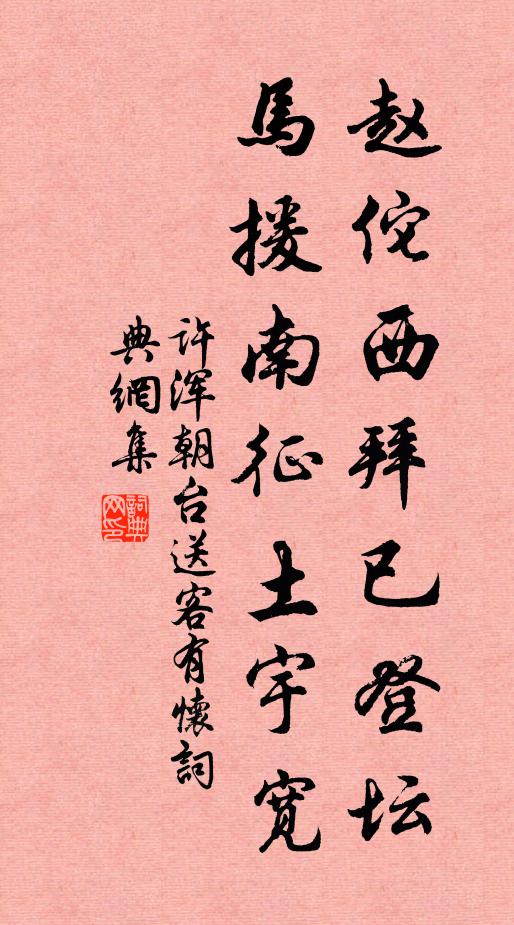 赵佗西拜已登坛
馬援南征土宇寛
许浑朝台送客有懷詞
典網集
詞典网印